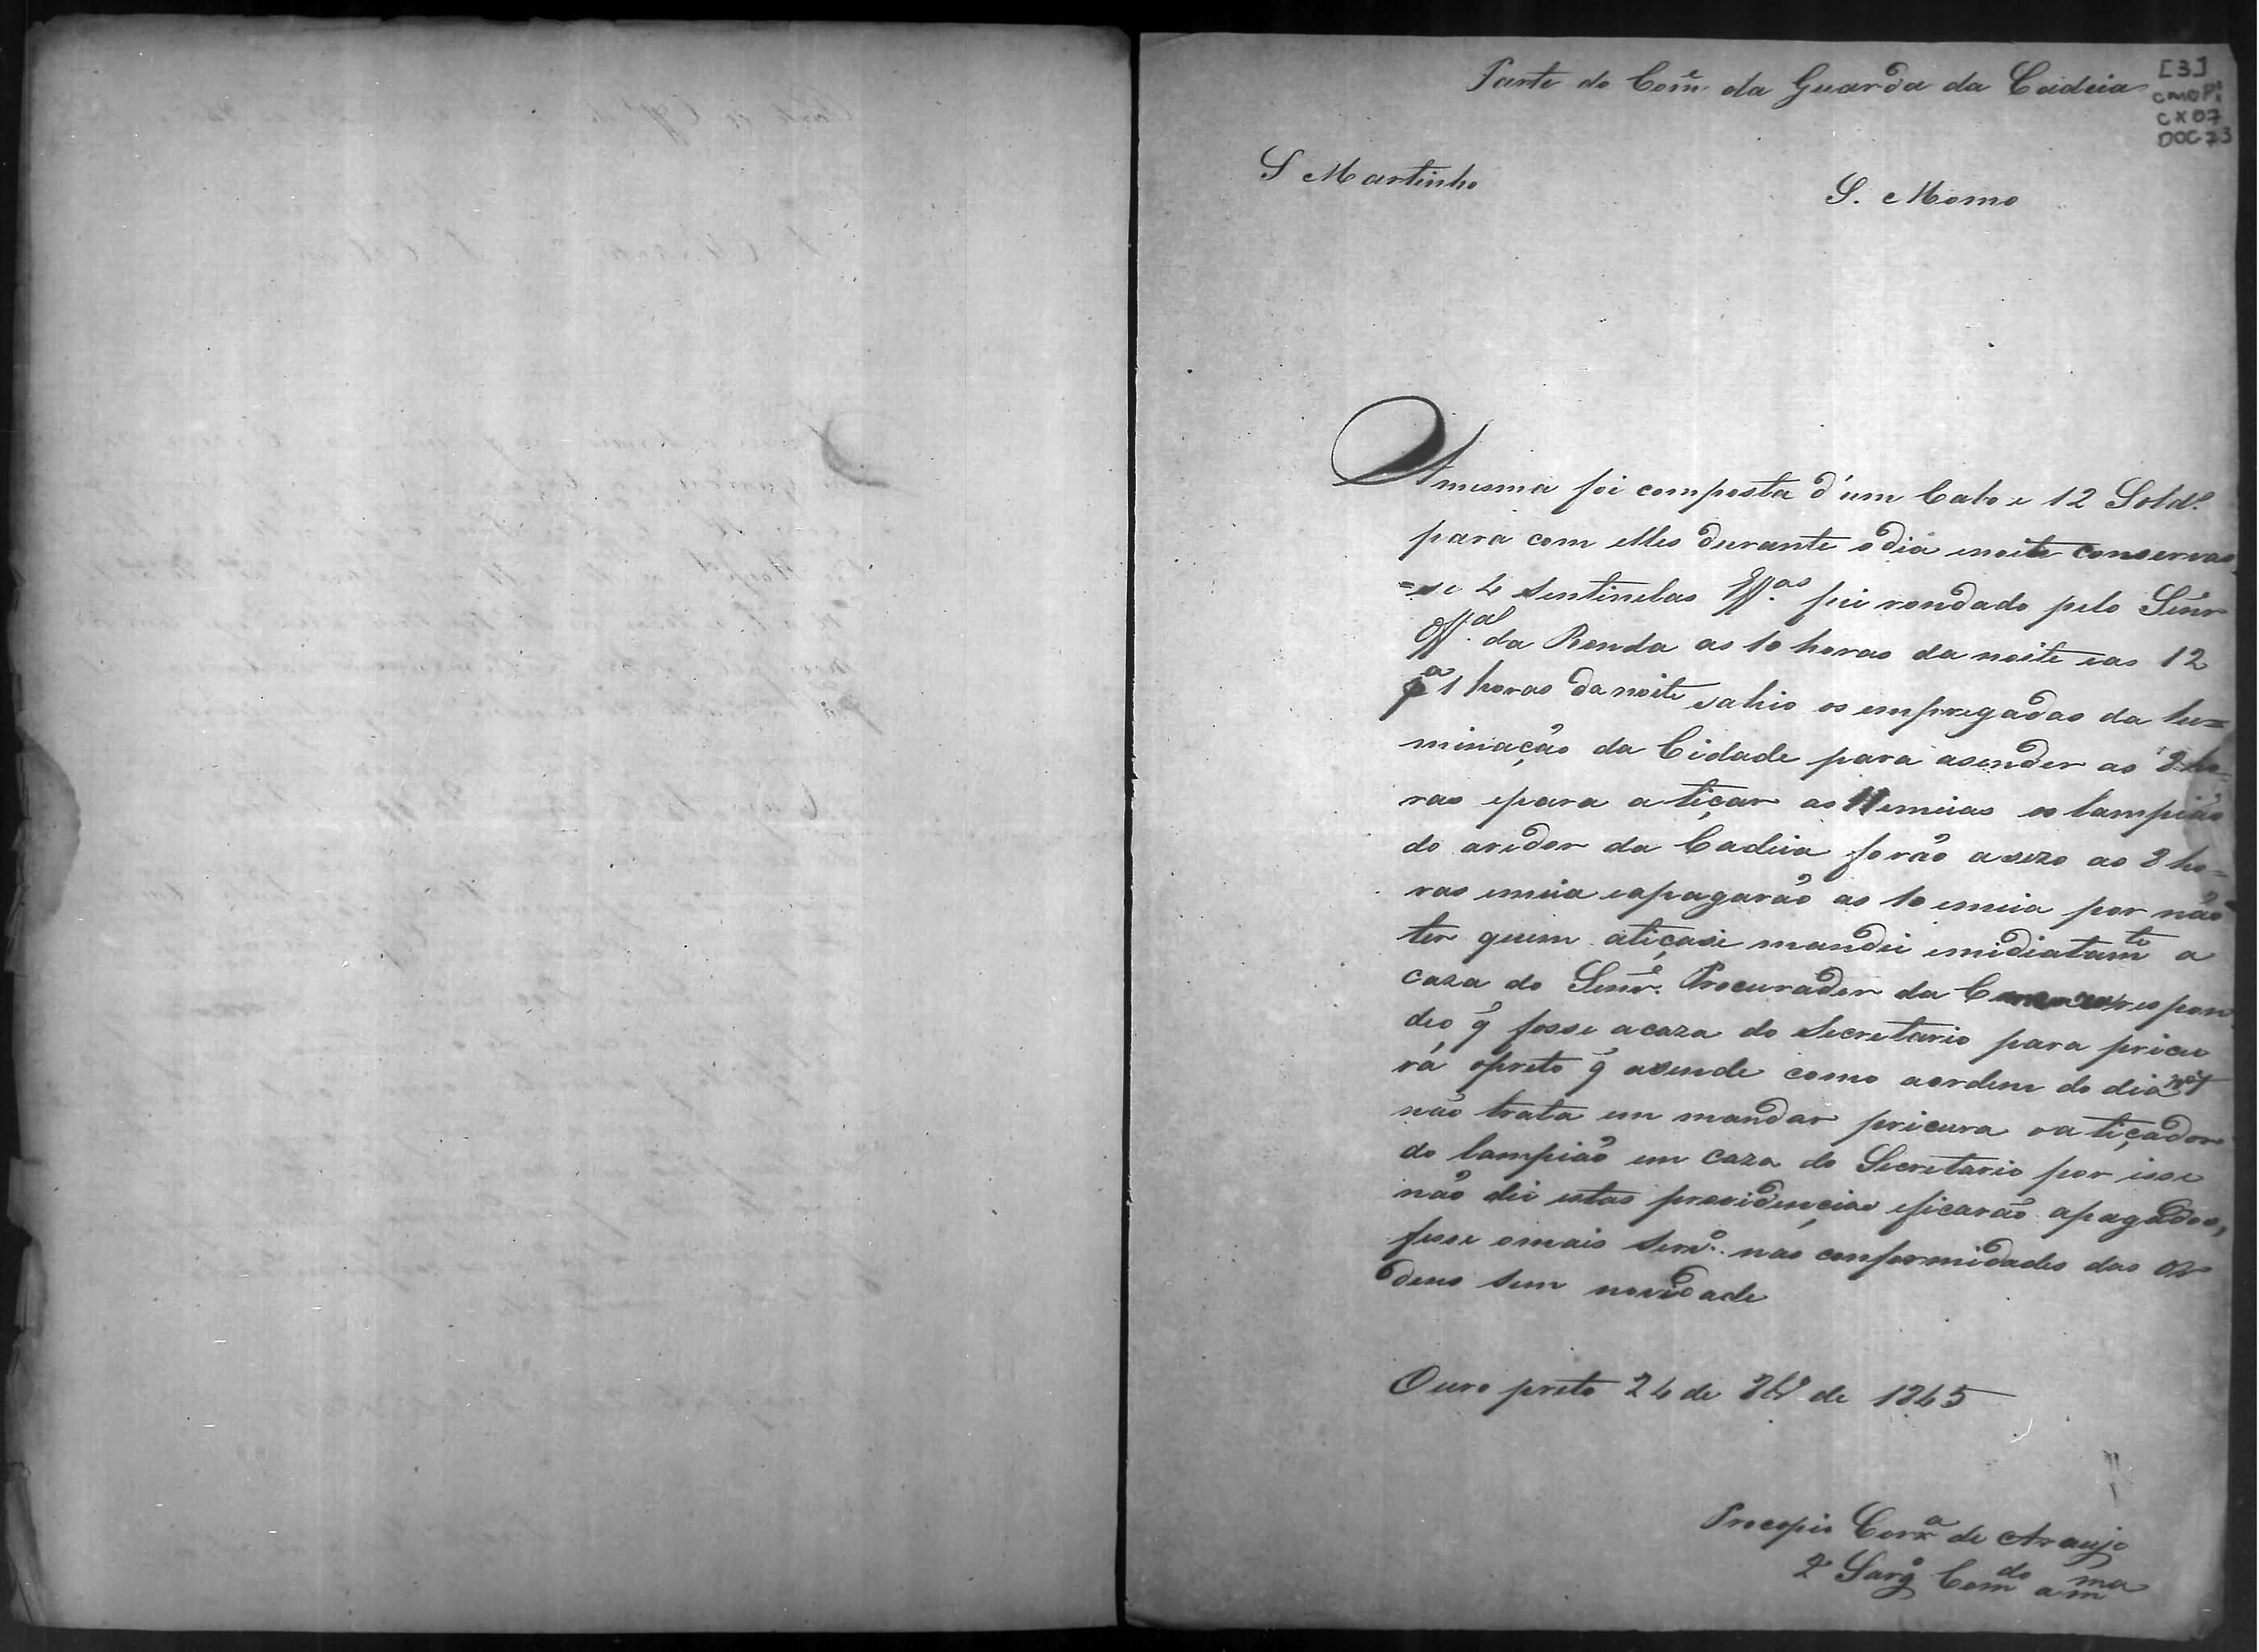 Parte do Com.e da Guarda da Cadeia
[3]
CMOPi
CX07
DOC 73
S Martinho
S. Momo
A mesma foi composta d'um Cabo e 12 Sold.s
para com elles durante o dia enoite conservar
=se 4 sentinelas foi rondado pelo Senr
Off.al da Ronda as 10 horas da noite eas 12
1 horas da noite sahio os empregadas da lu=
minação da Cidade para asender as 8 ho=
ras epara atiçar as 11 emeias os lampião
do aredor da Cadeia forão asezo as 8 ho=
ras emeia eapagarão as 10 emeia por não
ter quem atiçase mandei emidiatam.te a
caza do Senr. Procurador da respon
deo q̃ fosse acaza do Secretario para pricu
rá opreto q̃ asende como aordem do dia
não trata em mandar pricura oatiçador
do lampião em caza do Secretario por isse
não dei estas providencias eficarão apagados,
fesse omais serv.o nas conformidades das or
dens sem novidade
Ouro preto 24 de 8br.o de 1845
Procopio Corr.a de Araujo
2º Sarg.o Com.do a m.ma